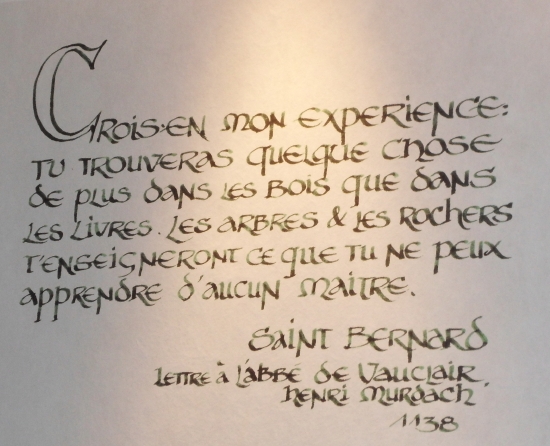 Crois-en mon experience:
tu trouveras quelque chose
de plus dans les bois que dans
les livres. Les arbres & les rochers
t'enseigneront ce que tu ne peux
apprendre d'aucun maitre.
Saint Bernard
Lettre à l'Abbé de Vauclair,
Henri Murdach
1138